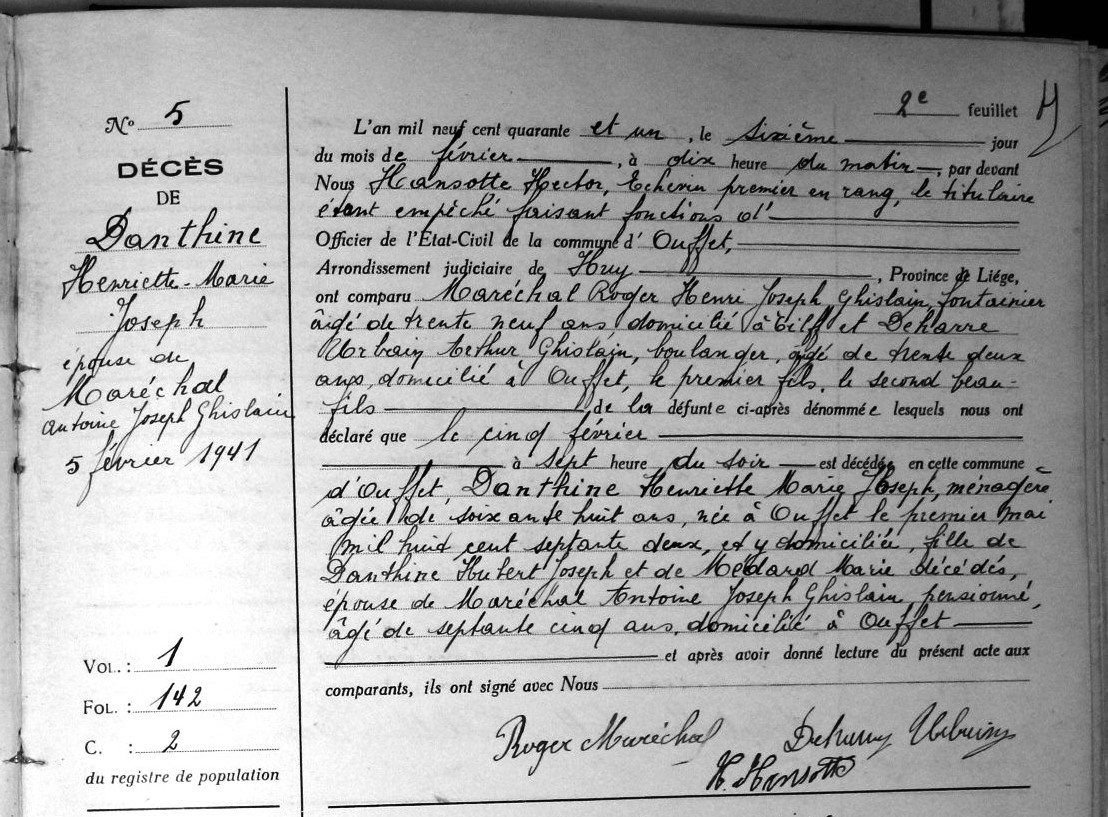 N° 5
DÉCÈS
DE
Danthine
Henriette-Marie
Joseph
épouse de
Maréchal
Antoine Joseph Ghislain
5 février 1941
VOL. : 1
FOL. : 142
C. : 2
du registre de population
2e feuillet
L'an mil neuf cent quarante et un, le sixième jour
du mois de février, à dix heure du matin, par devant
Nous Hansotte Hector, Echevin premier en rang, le titulaire
étant empêché faisant fonctions d'
Officier de l'État-Civil de la commune d' Ouffet,
Arrondissement judiciaire de Huy, Province de Liége,
ont comparu Maréchal Roger Henri Joseph Ghislain, fontainier
âgé de trente neuf ans domicilié à Tilff et Deharre
Urbain Arthur Ghislain, boulanger, âgé de trente deux
ans, domicilié à Ouffet, le premier fils, le second beau-
fils, de la défunte ci-après dénommée lesquels nous ont
déclaré que le cinq février
à sept heure du soir est décédée en cette commune
d'Ouffet, Danthine Henriette Marie Joseph, ménagère
âgée de soixante huit ans, née à Ouffet le premier mai
mil huit cent septante deux, et y domiciliée, fille de
Danthine Hubert Joseph et de Médard Marie décédés,
épouse de Maréchal Antoine Joseph Ghislain pensionné,
âgé de septante cinq ans, domicilié à Ouffet
et après avoir donné lecture du présent acte aux
comparants, ils ont signé avec Nous
Roger Maréchal Deharre Urbain
H. Hansotte